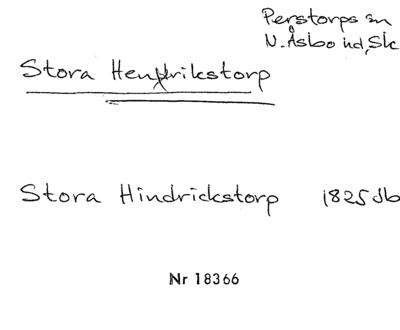 Perstorps sn
N. Åsbo hd, Sk
Stora Hendrikstorp
Stora Hindrickstorp 1825 Jb
Nr 18366